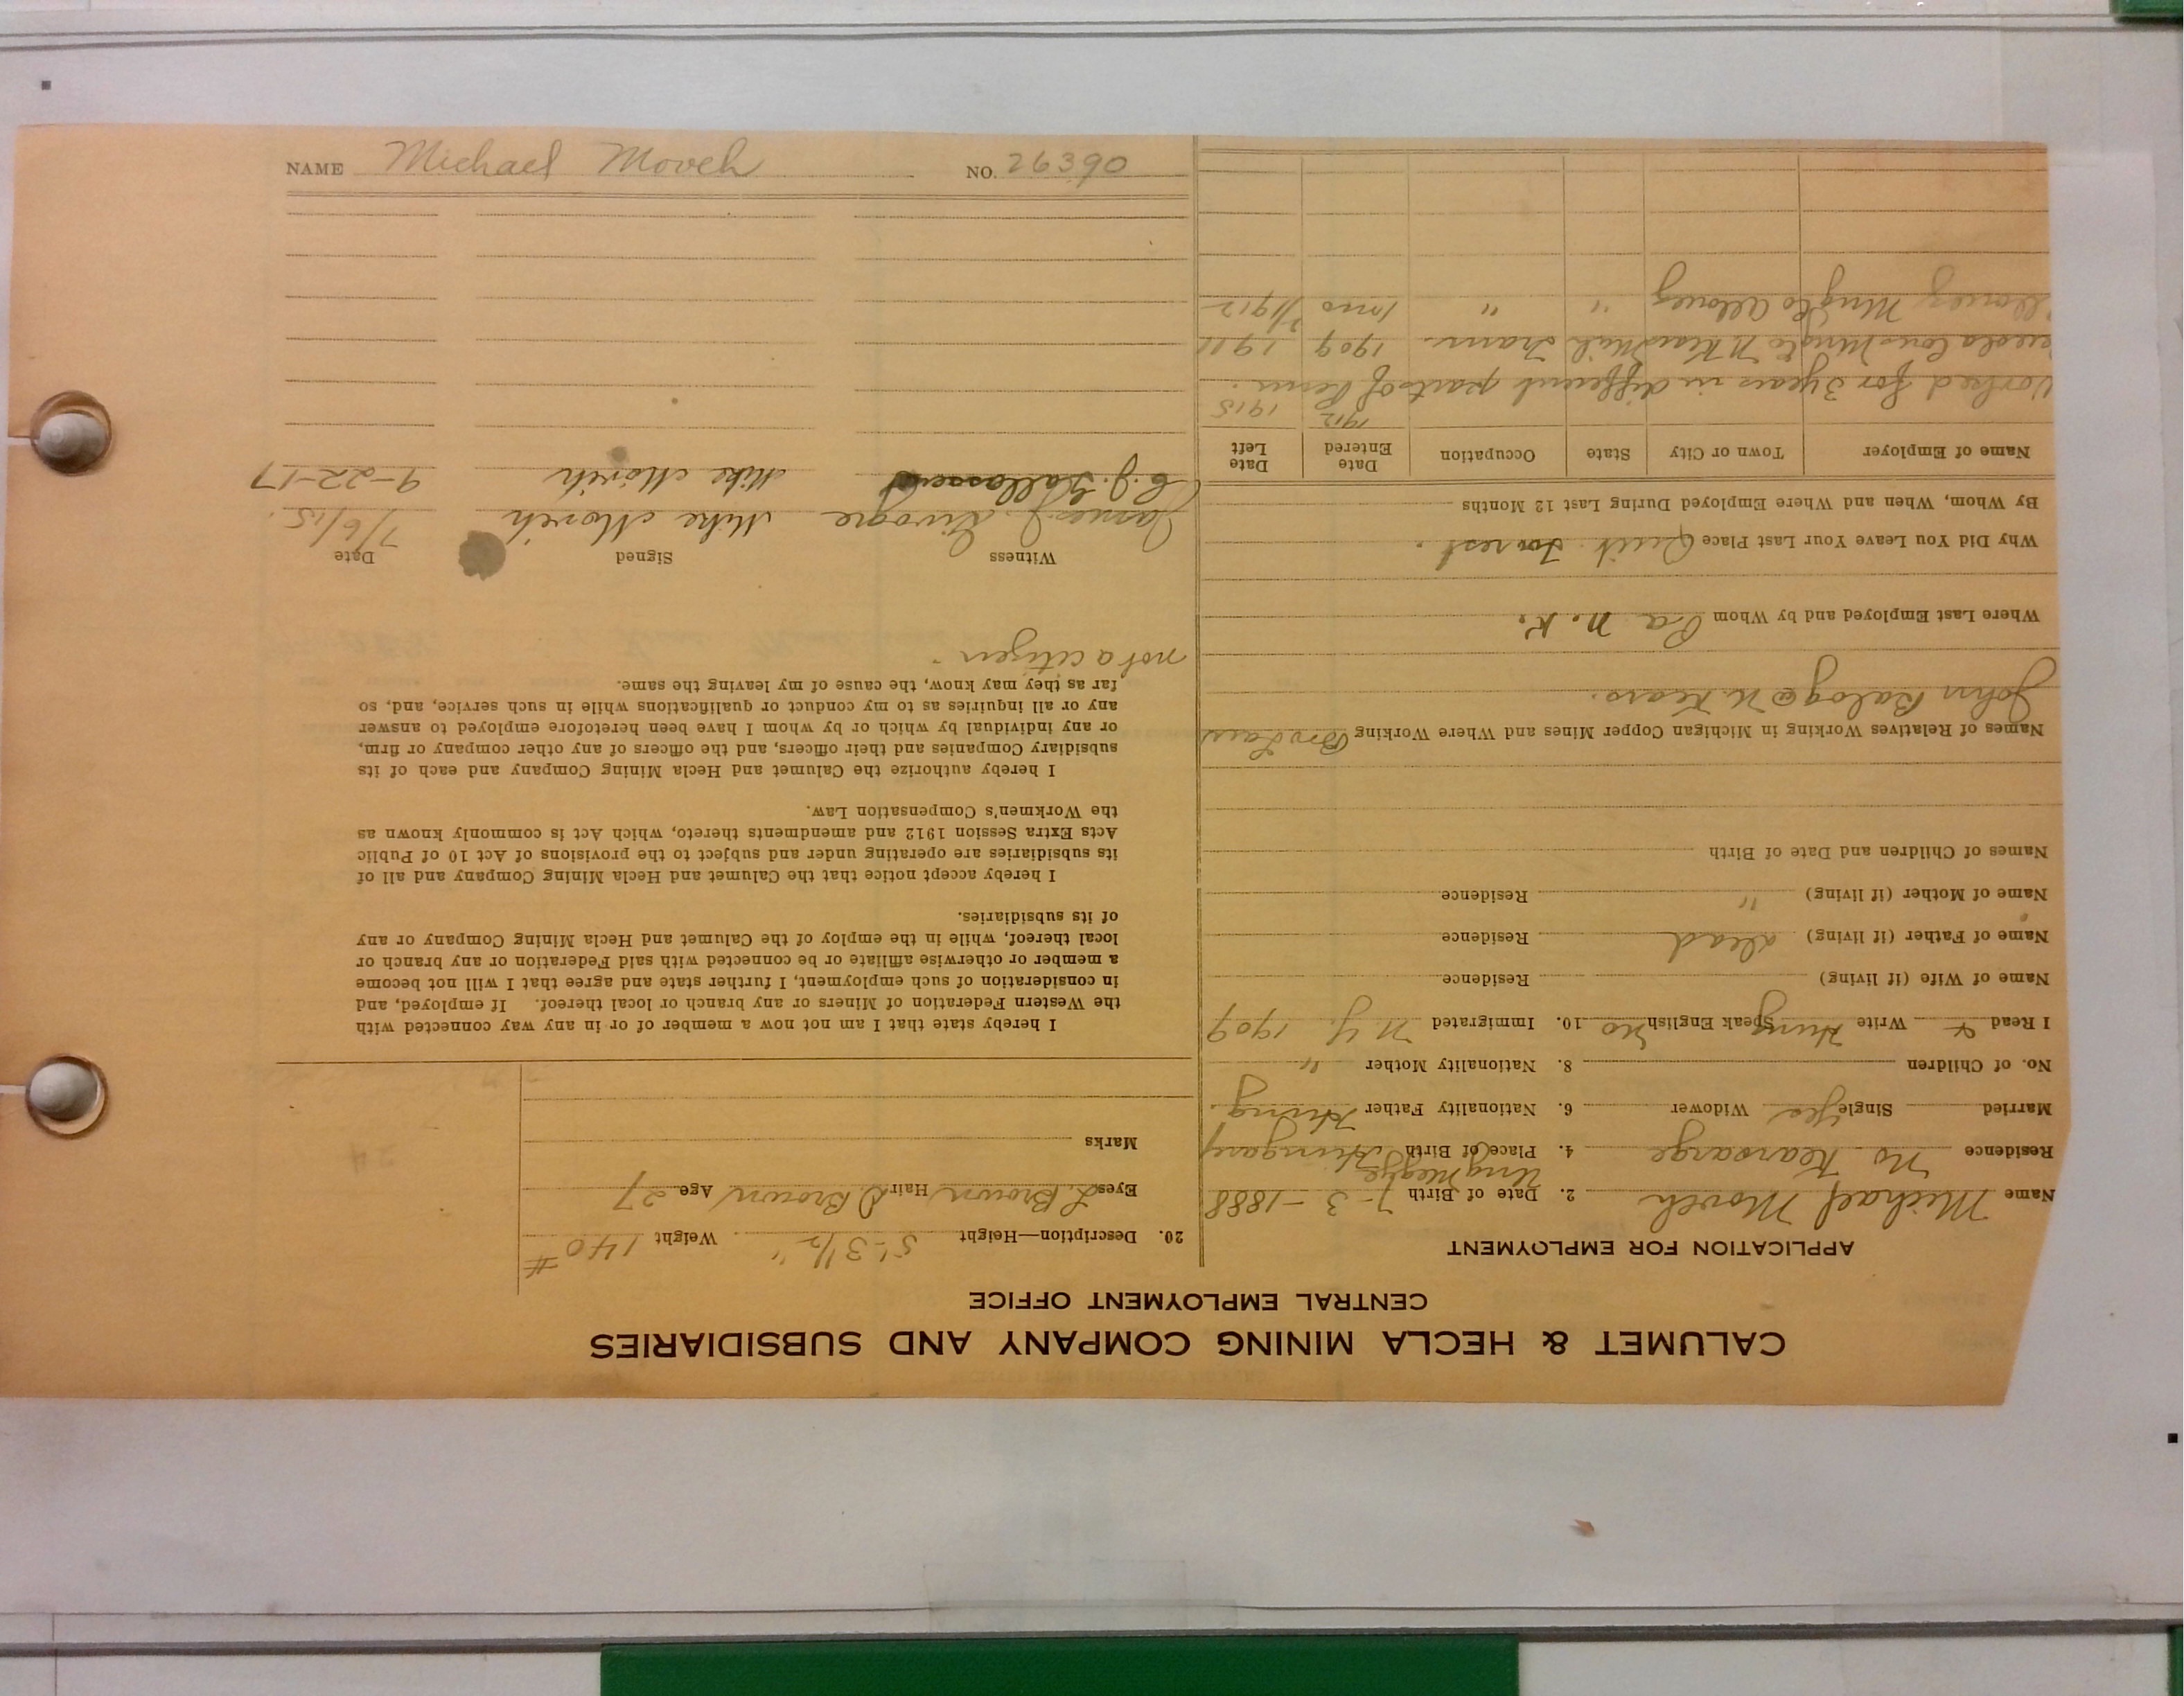 CALUMET & HECLA MINING COMPANY AND SUBSIDIARIES
CENTRAL EMPLOYMENT OFFICE
APPLICATION FOR EMPLOYMENT
Name Michael Movch 2. Date of Birth 7-3-1888
Residence No Kearsarge 4. Place of Birth Hungary
Married Single Yes Widower 6. Nationality Father Hung.
No. of Children 8. Nationality Mother "
I Read & Write Hung Speak English No 10. Immigrated N.Y. 1909
Name of Wife (if living) Residence
Name of Father (if living) dead Residence
Name of Mother (if living) " Residence
Names of Children and Date of Birth
Names of Relatives Working in Michigan Copper Mines and Where Working Bro Law
John Balog @ N. Kears.
Where Last Employed and by Whom Pa N. K.
Why Did You Leave Your Last Place Quit
By Whom, When and Where Employed During Last 12 Months
Name of Employer Town or City State Occupation Date Entered Date Left
1912 1915
Worked for 3 years in different parts of Penn.
Cons Mng Co N Kears Mich Tram. 1909 1911
Mng Co Allouez " " 1 mo 1912
20. Description—Height 5'-3 1/2" Weight 140 #
Eyes L. Brown Hair D. Brown Age 27
Marks
24
I hereby state that I am not now a member of or in any way connected with
the Western Federation of Miners or any branch or local thereof. If employed, and
in consideration of such employment, I further state and agree that I will not become
a member or otherwise affiliate or be connected with said Federation or any branch or
local thereof, while in the employ of the Calumet and Hecla Mining Company or any
of its subsidiaries.
I hereby accept notice that the Calumet and Hecla Mining Company and all of
its subsidiaries are operating under and subject to the provisions of Act 10 of Public
Acts Extra Session 1912 and amendments thereto, which Act is commonly known as
the Workmen's Compensation Law.
I hereby authorize the Calumet and Hecla Mining Company and each of its
subsidiary Companies and their officers, and the officers of any other company or firm,
or any individual by which or by whom I have been heretofore employed to answer
any or all inquiries as to my conduct or qualifications while in such service, and, so
far as they may know, the cause of my leaving the same.
not a citizen.
Witness Signed Date
James J. Mike Movch 7/6/15.
C. J. Mike Movch 9-22-17
NAME Michael Movch NO. 26390